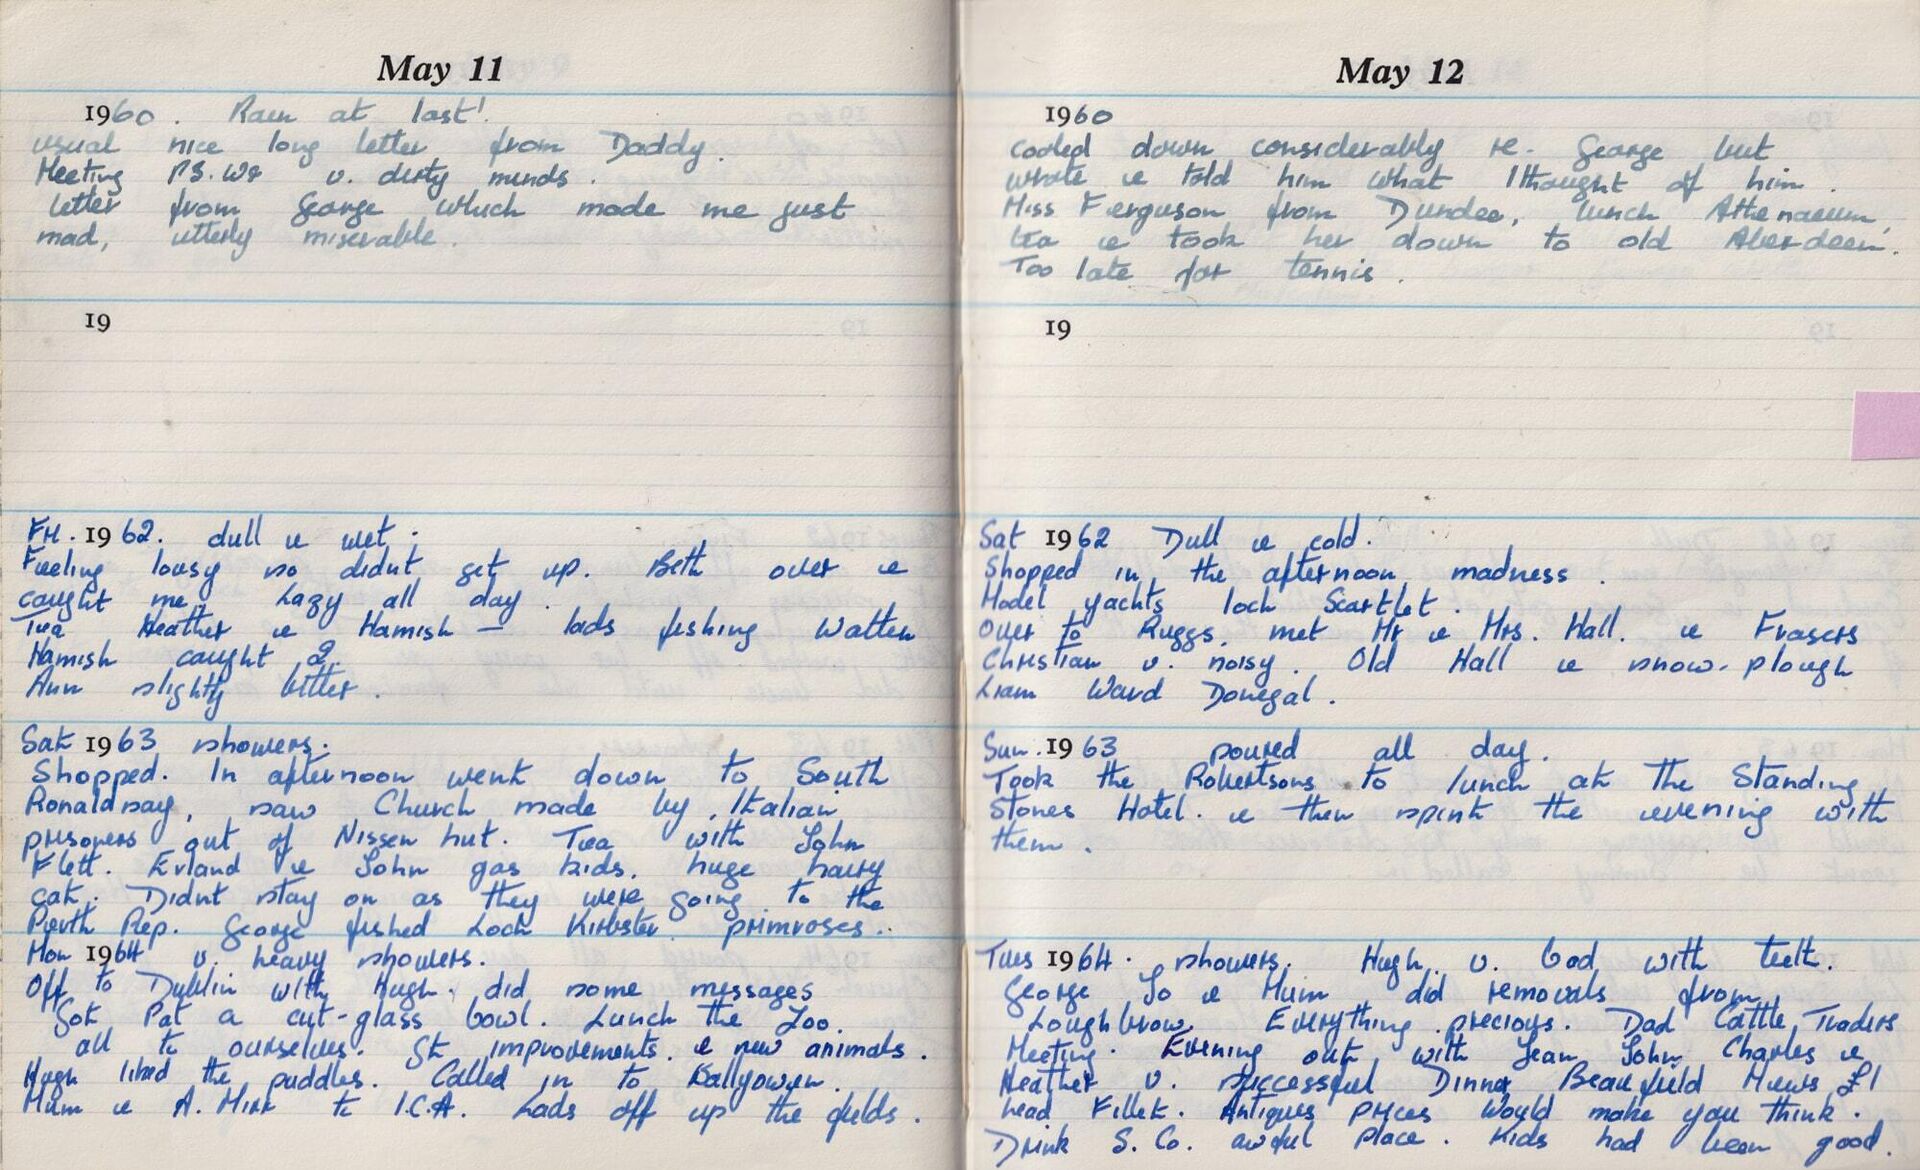 May 11
1960. Rain at last!
usual nice long letter from Daddy.
Meeting P.S.Ws v. dirty minds.
Letter from George which made me just
mad, utterly miserable.
19
Fri. 1962. dull & wet.
Feeling lousy so didnt get up. Beth over &
caught me, Lazy all day.
Tea Heather & Hamish — lads fishing Watten
Hamish caught 2.
Ann slightly better.
Sat 1963 showers.
Shopped. In afternoon went down to South
Ronaldsay, saw Church made by Italian
prisoners out of Nissen hut. Tea with John
Flett. Erland & John gas kids. huge hairy
cat. Didnt stay on as they were going to the
Perth Rep. George fished Loch Kirbster. primroses.
Mon 1964 v. heavy showers.
Off to Dublin with Hugh. did some messages
Got Pat a cut-glass bowl. Lunch the Zoo.
all to ourselves. Gt improvements. & new animals.
Hugh liked the puddles. Called in to Ballyowen.
Mum & A. Mirr to I.C.A. Lads off up the fields.
May 12
1960
cooled down considerably re. George but
wrote & told him what I thought of him.
Miss Ferguson from Dundee, lunch Athenaeum,
tea & took her down to old Aberdeen.
Too late for tennis.
19
Sat 1962 Dull & cold.
Shopped in the afternoon, madness.
Model yachts loch Scartlet.
Over to Ruggs. met Mr & Mrs. Hall. & Frasers
Christian v. noisy. Old Hall & snow-plough
Liam Ward Donegal.
Sun. 1963 poured all day.
Took the Robertsons to lunch at the Standing
Stones Hotel. & then spent the evening with
them.
Tues 1964. showers. Hugh v. bad with teeth.
George Jo & Mum did removals from
Loughbrow. Everything precious. Dad Cattle Traders
Meeting. Evening out with Jean John Charles &
Heather v. successful Dinner Beaufield Mews £1
head Fillet. Antiques prices would make you think.
Drink S. Co. awful place. Kids had been good.